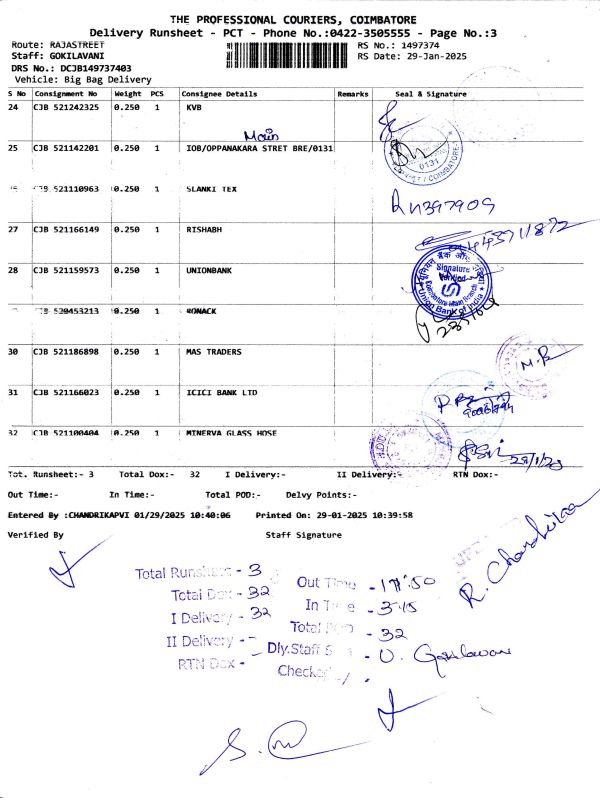 THE PROFESSIONAL COURIERS, COIMBATORE
Delivery Runsheet - PCT - Phone No.:0422-3505555 - Page No.:3
Route: RAJASTREET
Staff: GOKILAVANI
DRS No.: DCJB149737403
Vehicle: Big Bag Delivery
RS No.: 1497374
RS Date: 29-Jan-2025
S No Consignment No Weight PCS Consignee Details Remarks Seal & Signature
24 CJB 521242325 0.250 1 KVB
Main
25 CJB 521142201 0.250 1 IOB/OPPANAKARA STRET BRE/0131
0131
COIMBATORE
CJB 521110963 0.250 1 SLANKI TEX
27 CJB 521166149 0.250 1 RISHABH
28 CJB 521159573 0.250 1 UNIONBANK
Signature
Verified
Coimbatore Main Branch
Union Bank of India
CJB 520453213 0.250 1 RONACK
30 CJB 521186898 0.250 1 MAS TRADERS
M.R
31 CJB 521166023 0.250 1 ICICI BANK LTD
32 CJB 521100404 0.250 1 MINERVA GLASS HOSE
Tot. Runsheet:- 3 Total Dox:- 32 I Delivery:- II Delivery:- RTN Dox:-
Out Time:- In Time:- Total POD:- Delvy Points:-
Entered By :CHANDRIKAPVI 01/29/2025 10:40:06 Printed On: 29-01-2025 10:39:58
Verified By Staff Signature
Total Runsheet - 3
Total Dox - 32
I Delivery - 32
II Delivery -
RTN Dox -
Out Time - 11:50
In Time - 3:45
Total POD - 32
Dly.Staff - U. Gokilavani
Checked By